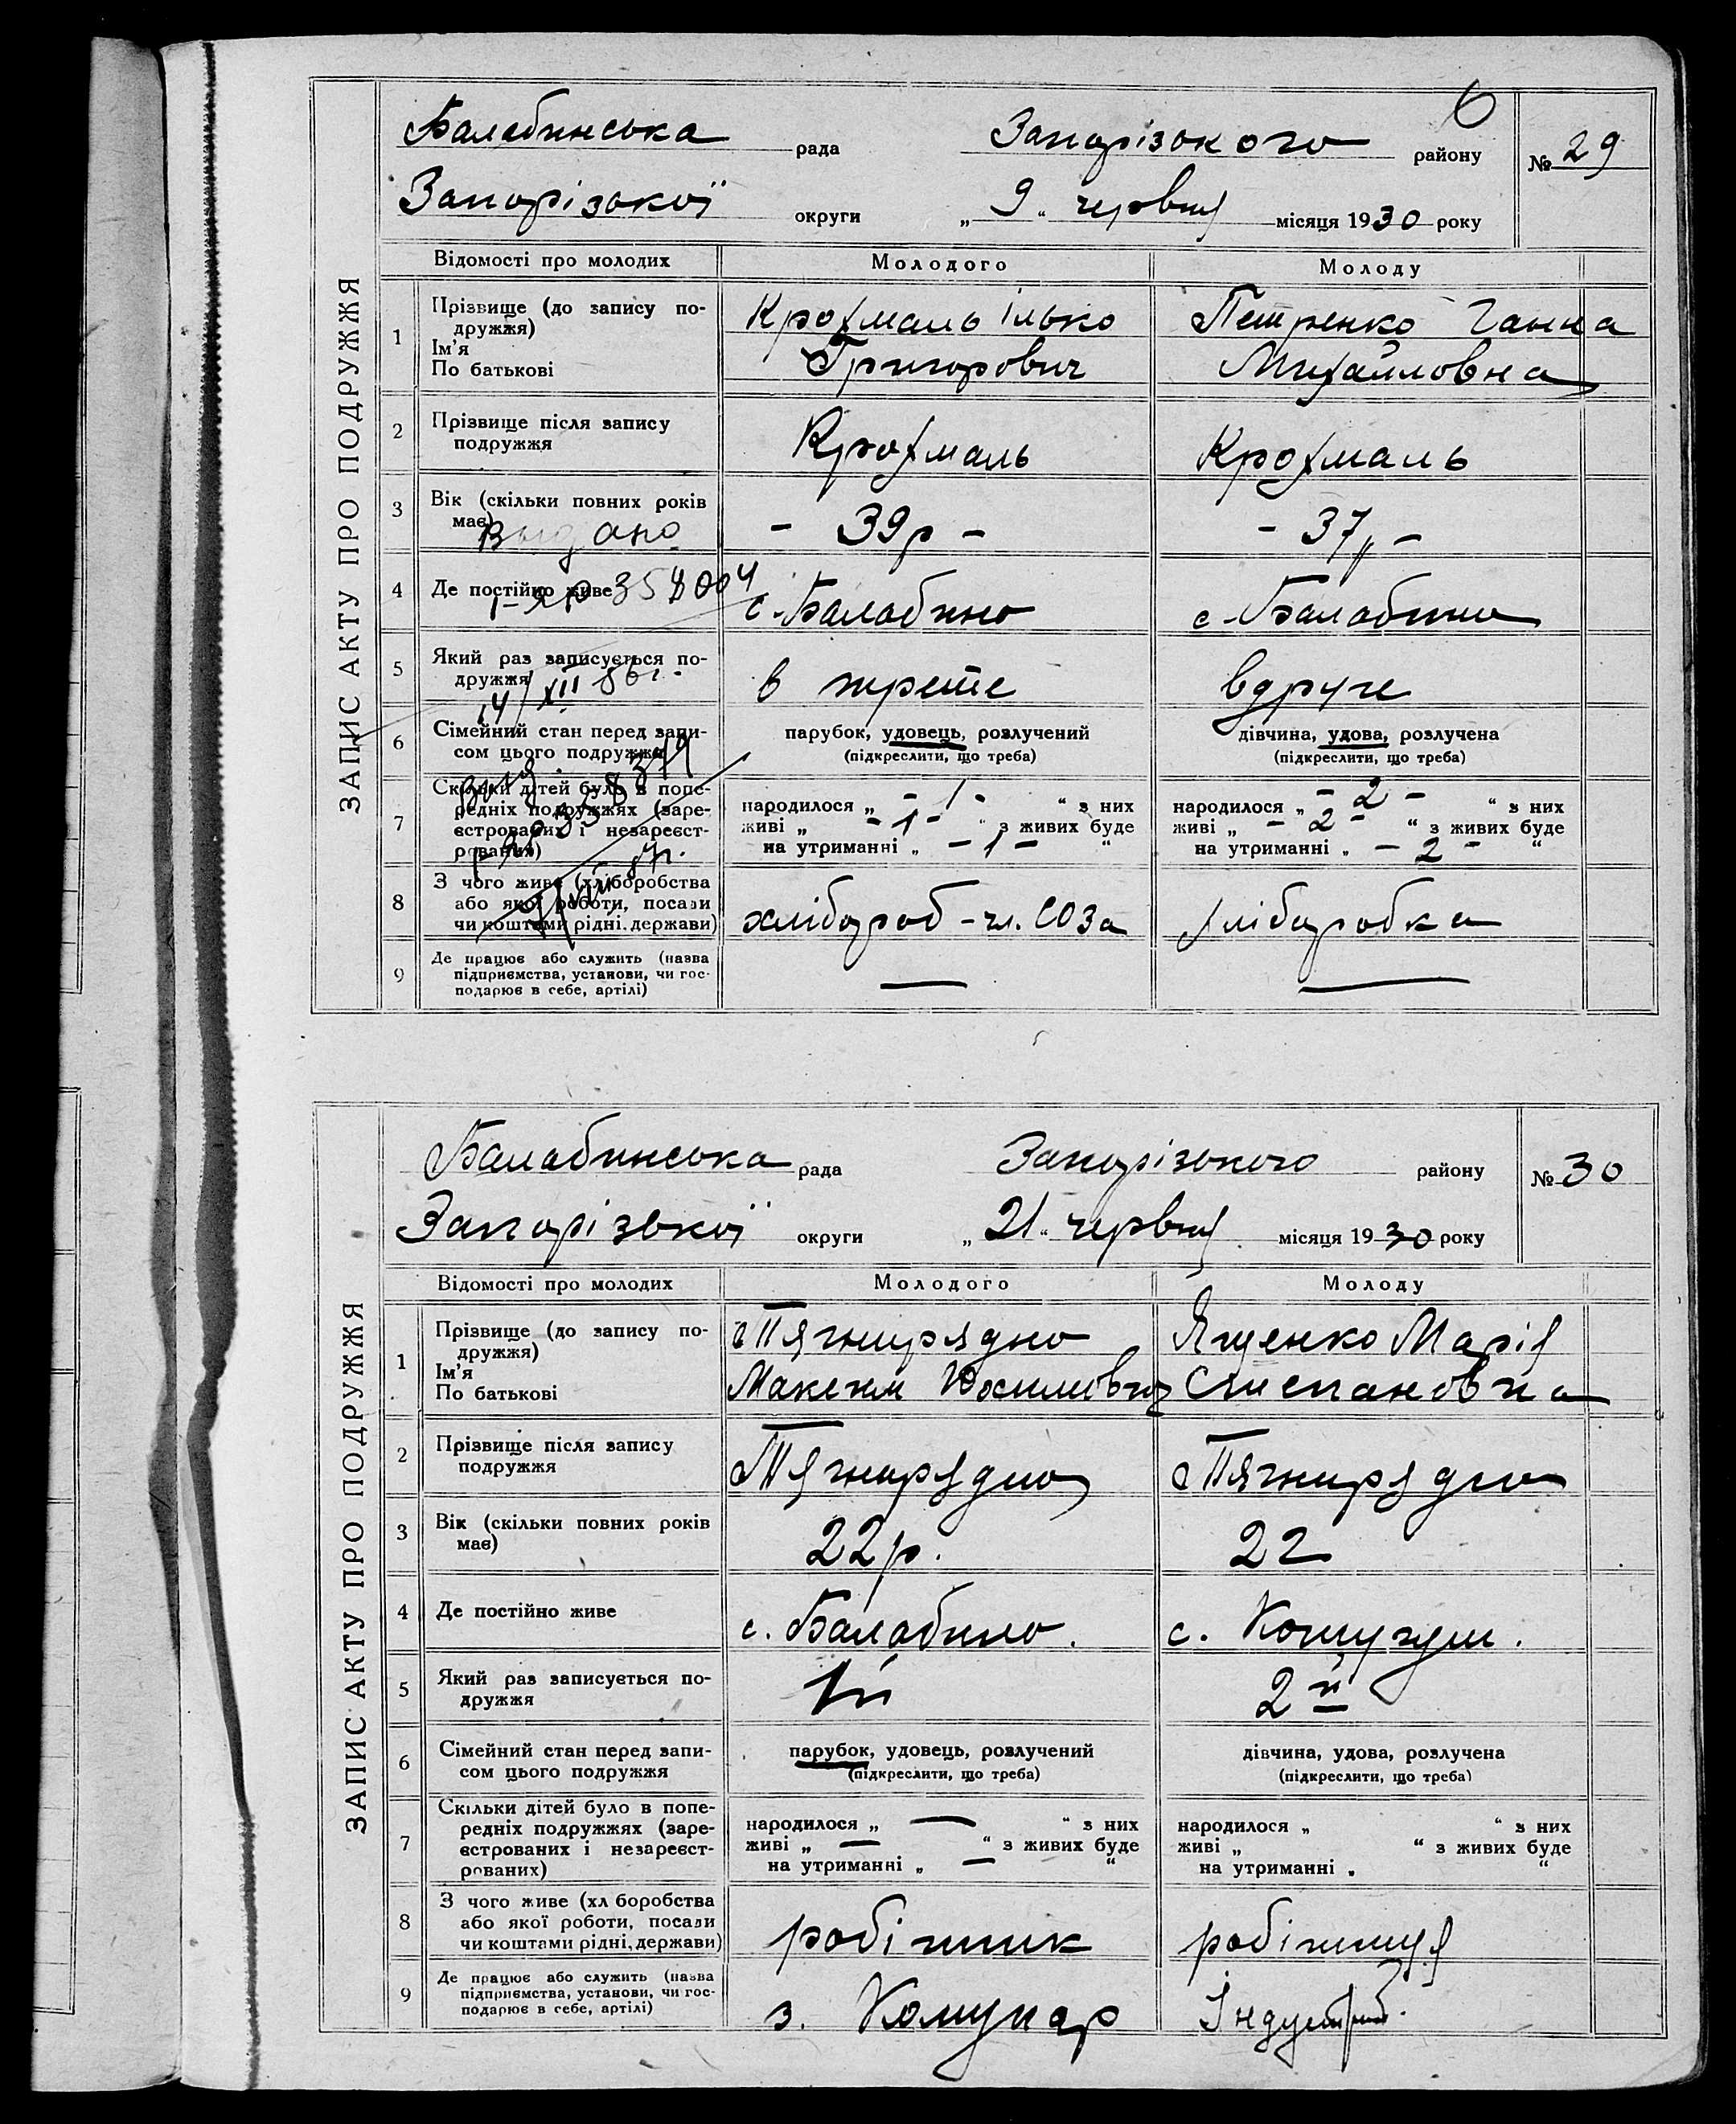 6
Балабинська рада Запорізького району № 29
Запорізької округи „ 9 “ червня місяця 1930 року
ЗАПИС АКТУ ПРО ПОДРУЖЖЯ
Відомості про молодих Молодого Молоду
1 Прізвище (до запису по-
дружжя)
Ім'я
По батькові
Крохмаль Ілько
Григорович
Петренко Ганна
Михайловна
2 Прізвище після запису
подружжя
Крохмаль Крохмаль
3 Вік (скільки повних років
має)
- 39р - - 37 „ -
Выдано
4 Де постійно живе
с. Балабино с. Балабино
5 Який раз записується по-
дружжя
в трете вдруге
14/XII 56г.
6 Сімейний стан перед запи-
сом цього подружжя
парубок, удовець, розлучений
(підкреслити, що треба)
дівчина, удова, розлучена
(підкреслити, що треба)
7 Скільки дітей було в попе-
редніх подружжях (заре-
єстрованих і незареєст-
рованих)
народилося „ - 1 - “ з них
живі „ - 1 - “ з живих буде
на утриманні „ - 1 - “
народилося „ - 2 - “ з них
живі „ - 2 - “ з живих буде
на утриманні „ - 2 - “
8 З чого живе (хліборобства
або якої роботи, посади
чи коштами рідні, держави)
хлібороб - чл. СОЗа хліборобка
9 Де працює або служить (назва
підприємства, установи, чи гос-
подарює в себе, артілі)
— —
Балабинська рада Запорізького району № 30
Запорізької округи „ 21 “ червня місяця 1930 року
ЗАПИС АКТУ ПРО ПОДРУЖЖЯ
Відомості про молодих Молодого Молоду
1 Прізвище (до запису по-
дружжя)
Ім'я
По батькові
Тягнирядно
Максим Юхимович
Ященко Марія
Степановна
2 Прізвище після запису
подружжя
Тягнирядно Тягнирядно
3 Вік (скільки повних років
має)
22р. 22
4 Де постійно живе
с. Балабино. с.
5 Який раз записується по-
дружжя
1й 2й
6 Сімейний стан перед запи-
сом цього подружжя
парубок, удовець, розлучений
(підкреслити, що треба)
дівчина, удова, розлучена
(підкреслити, що треба)
7 Скільки дітей було в попе-
редніх подружжях (заре-
єстрованих і незареєст-
рованих)
народилося „ — “ з них
живі „ — “ з живих буде
на утриманні „ — “
народилося „ “ з них
живі „ “ з живих буде
на утриманні „ “
8 З чого живе (хл боробства
або якої роботи, посади
чи коштами рідні, держави)
робітник робітниця
9 Де працює або служить (назва
підприємства, установи, чи гос-
подарює в себе, артілі)
з. Комунар